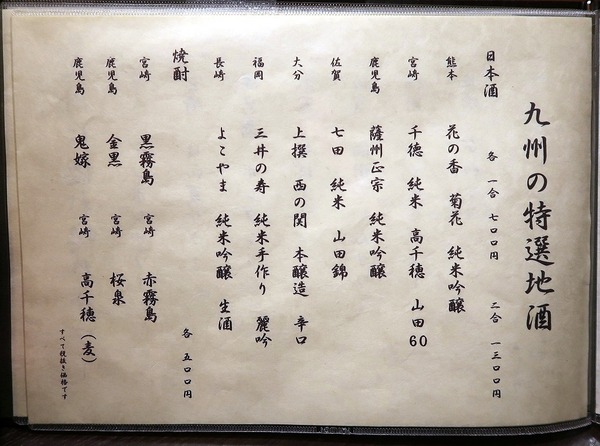 九州の特選地酒
日本酒 各 一合 七〇〇円 二合 一三〇〇円
熊本 花の香 菊花 純米吟醸
宮崎 千徳 純米 高千穂 山田60
鹿児島 薩州正宗 純米吟醸
佐賀 七田 純米 山田錦
大分 上撰 西の関 本醸造 辛口
福岡 三井の寿 純米手作り 麗吟
長崎 よこやま 純米吟醸 生酒
焼酎 各 五〇〇円
宮崎 黒霧島 宮崎 赤霧島
鹿児島 金黒 宮崎 桜泉
鹿児島 鬼嫁 宮崎 高千穂(麦)
すべて税抜き価格です